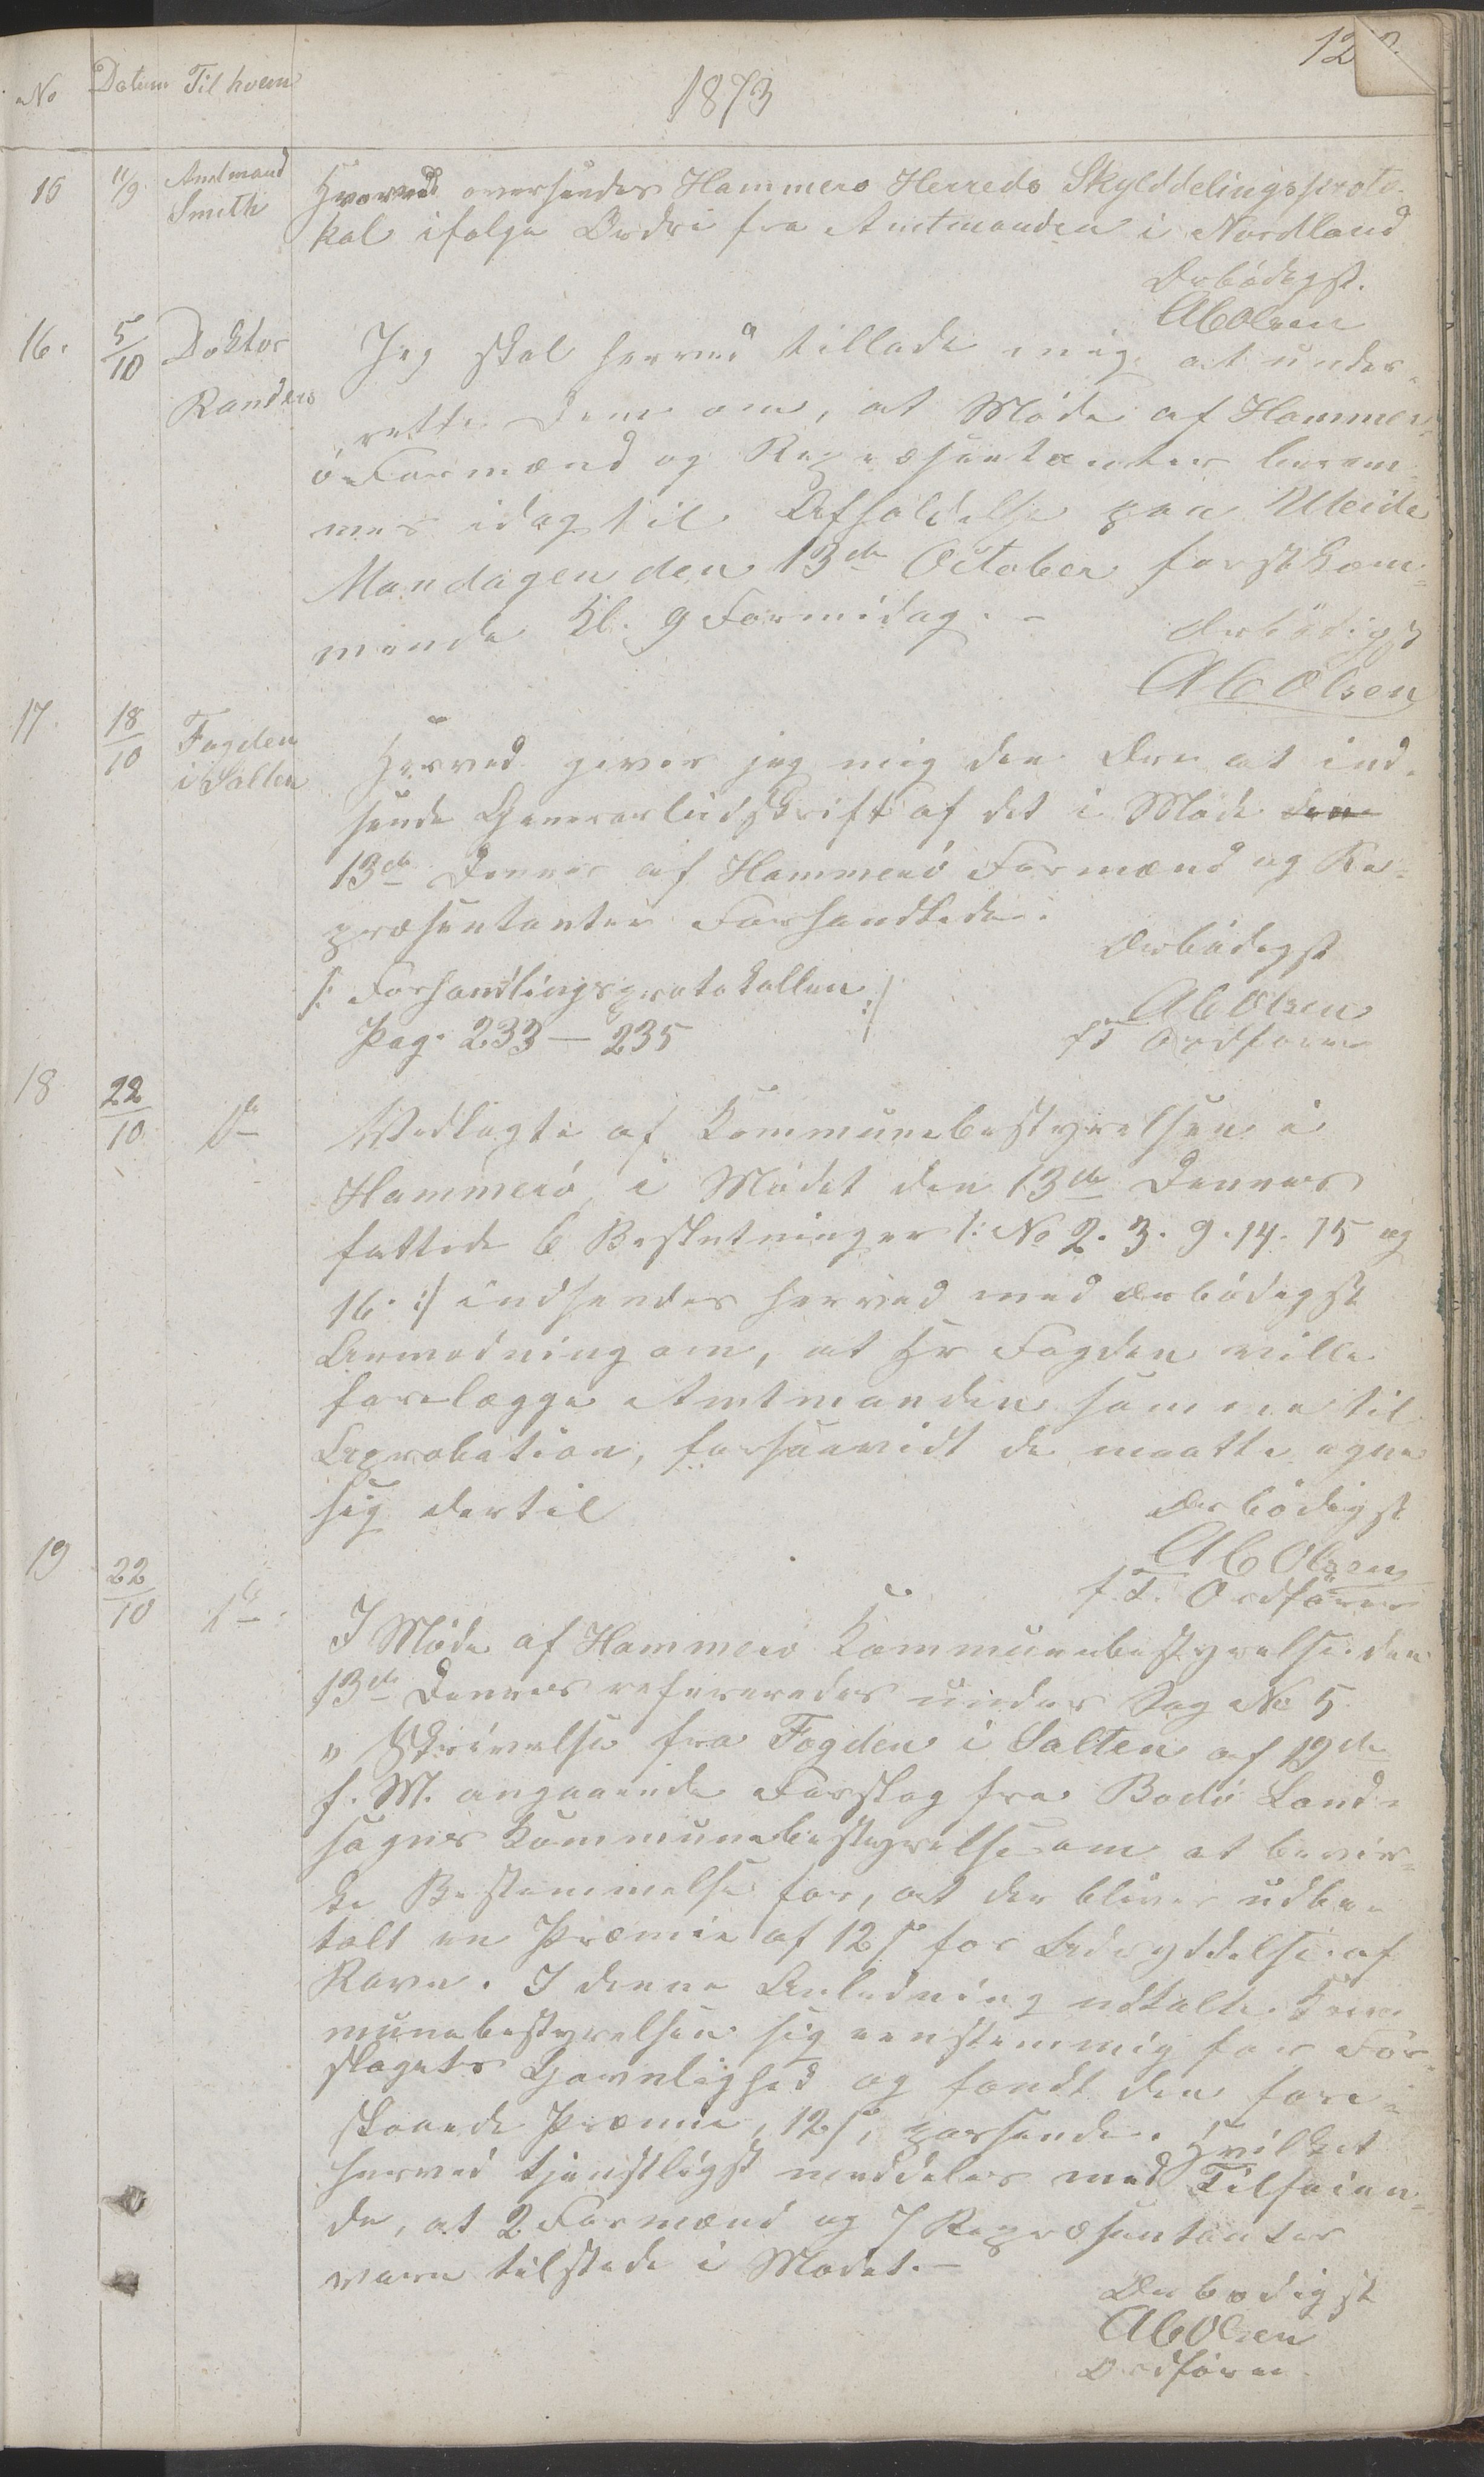 12
No Datum Til hvem
1873
15 11/9 Amtmand Smith
Hvorved oversendes Hammerø Herreds Skylddelingsproto-
kol ifølge Ordre fra Amtmanden i Nordland
Ærbødigst.
A C Olsen
16. 5/10 Doktor Randers
Jeg skal herved tillade mig at under-
rette Dem om, at Møde af Hammer-
ø Formænd og Repræsentanter beram-
mes idag til Afholdelse paa Uleide
Mandagen den 13de October førstkom-
mende Kl. 9 Formidag. -
Ærbødigst
A C Olsen
17. 18/10 Fogden i Salten
Herved giver jeg mig den Ære at ind-
sende Gjenpartudskrift af det i Møde den
13de Dennes af Hammerø Formænd og Re-
præsentanter Forhandlede.
Ærbødigst
/: Forhandlingsprotokollen
Pag. 233 — 235 :/
A C Olsen
f T Ordfører
18 22/10 do
Vedlagte af Kommunebestyrelsen i
Hammerø i Mødet den 13de Dennes
fattede 6 Beslutninger /: No 2. 3. 9. 14. 15 og
16. :/ indsendes herved med ærbødigst
Anmodning om, at Hr Fogden ville
forelægge Amtmanden samme til
Approbation, forsaavidt de maatte egne
sig dertil
Ærbødigst
A C Olsen
f. T. Ordfører
19 22/10 do
I Møde af Hammerø Kommunebestyrelse den
13de Dennes refereredes under Sag No 5.
" Skrivelse fra Fogden i Salten af 19de
f. M. angaaende Forslag fra Bodø Land-
sogns Kommunebestyrelse om at bevir-
ke Bestemmelse for, at der bliver udbe-
talt en Præmie af 12 s for Udryddelse af
Ravn. I denne Anledning udtalte Kom-
munebestyrelsen sig eenstemmig for For-
slagets Gavnlighed og fandt den fore-
slaaede Præmie, 12 s, passende. Hvilket
herved tjenstligst meddeles med Tilføien-
de, at 2 Formænd og 7 Repræsentanter
vare tilstede i Mødet. —
Ærbødigst
A C Olsen
Ordfører